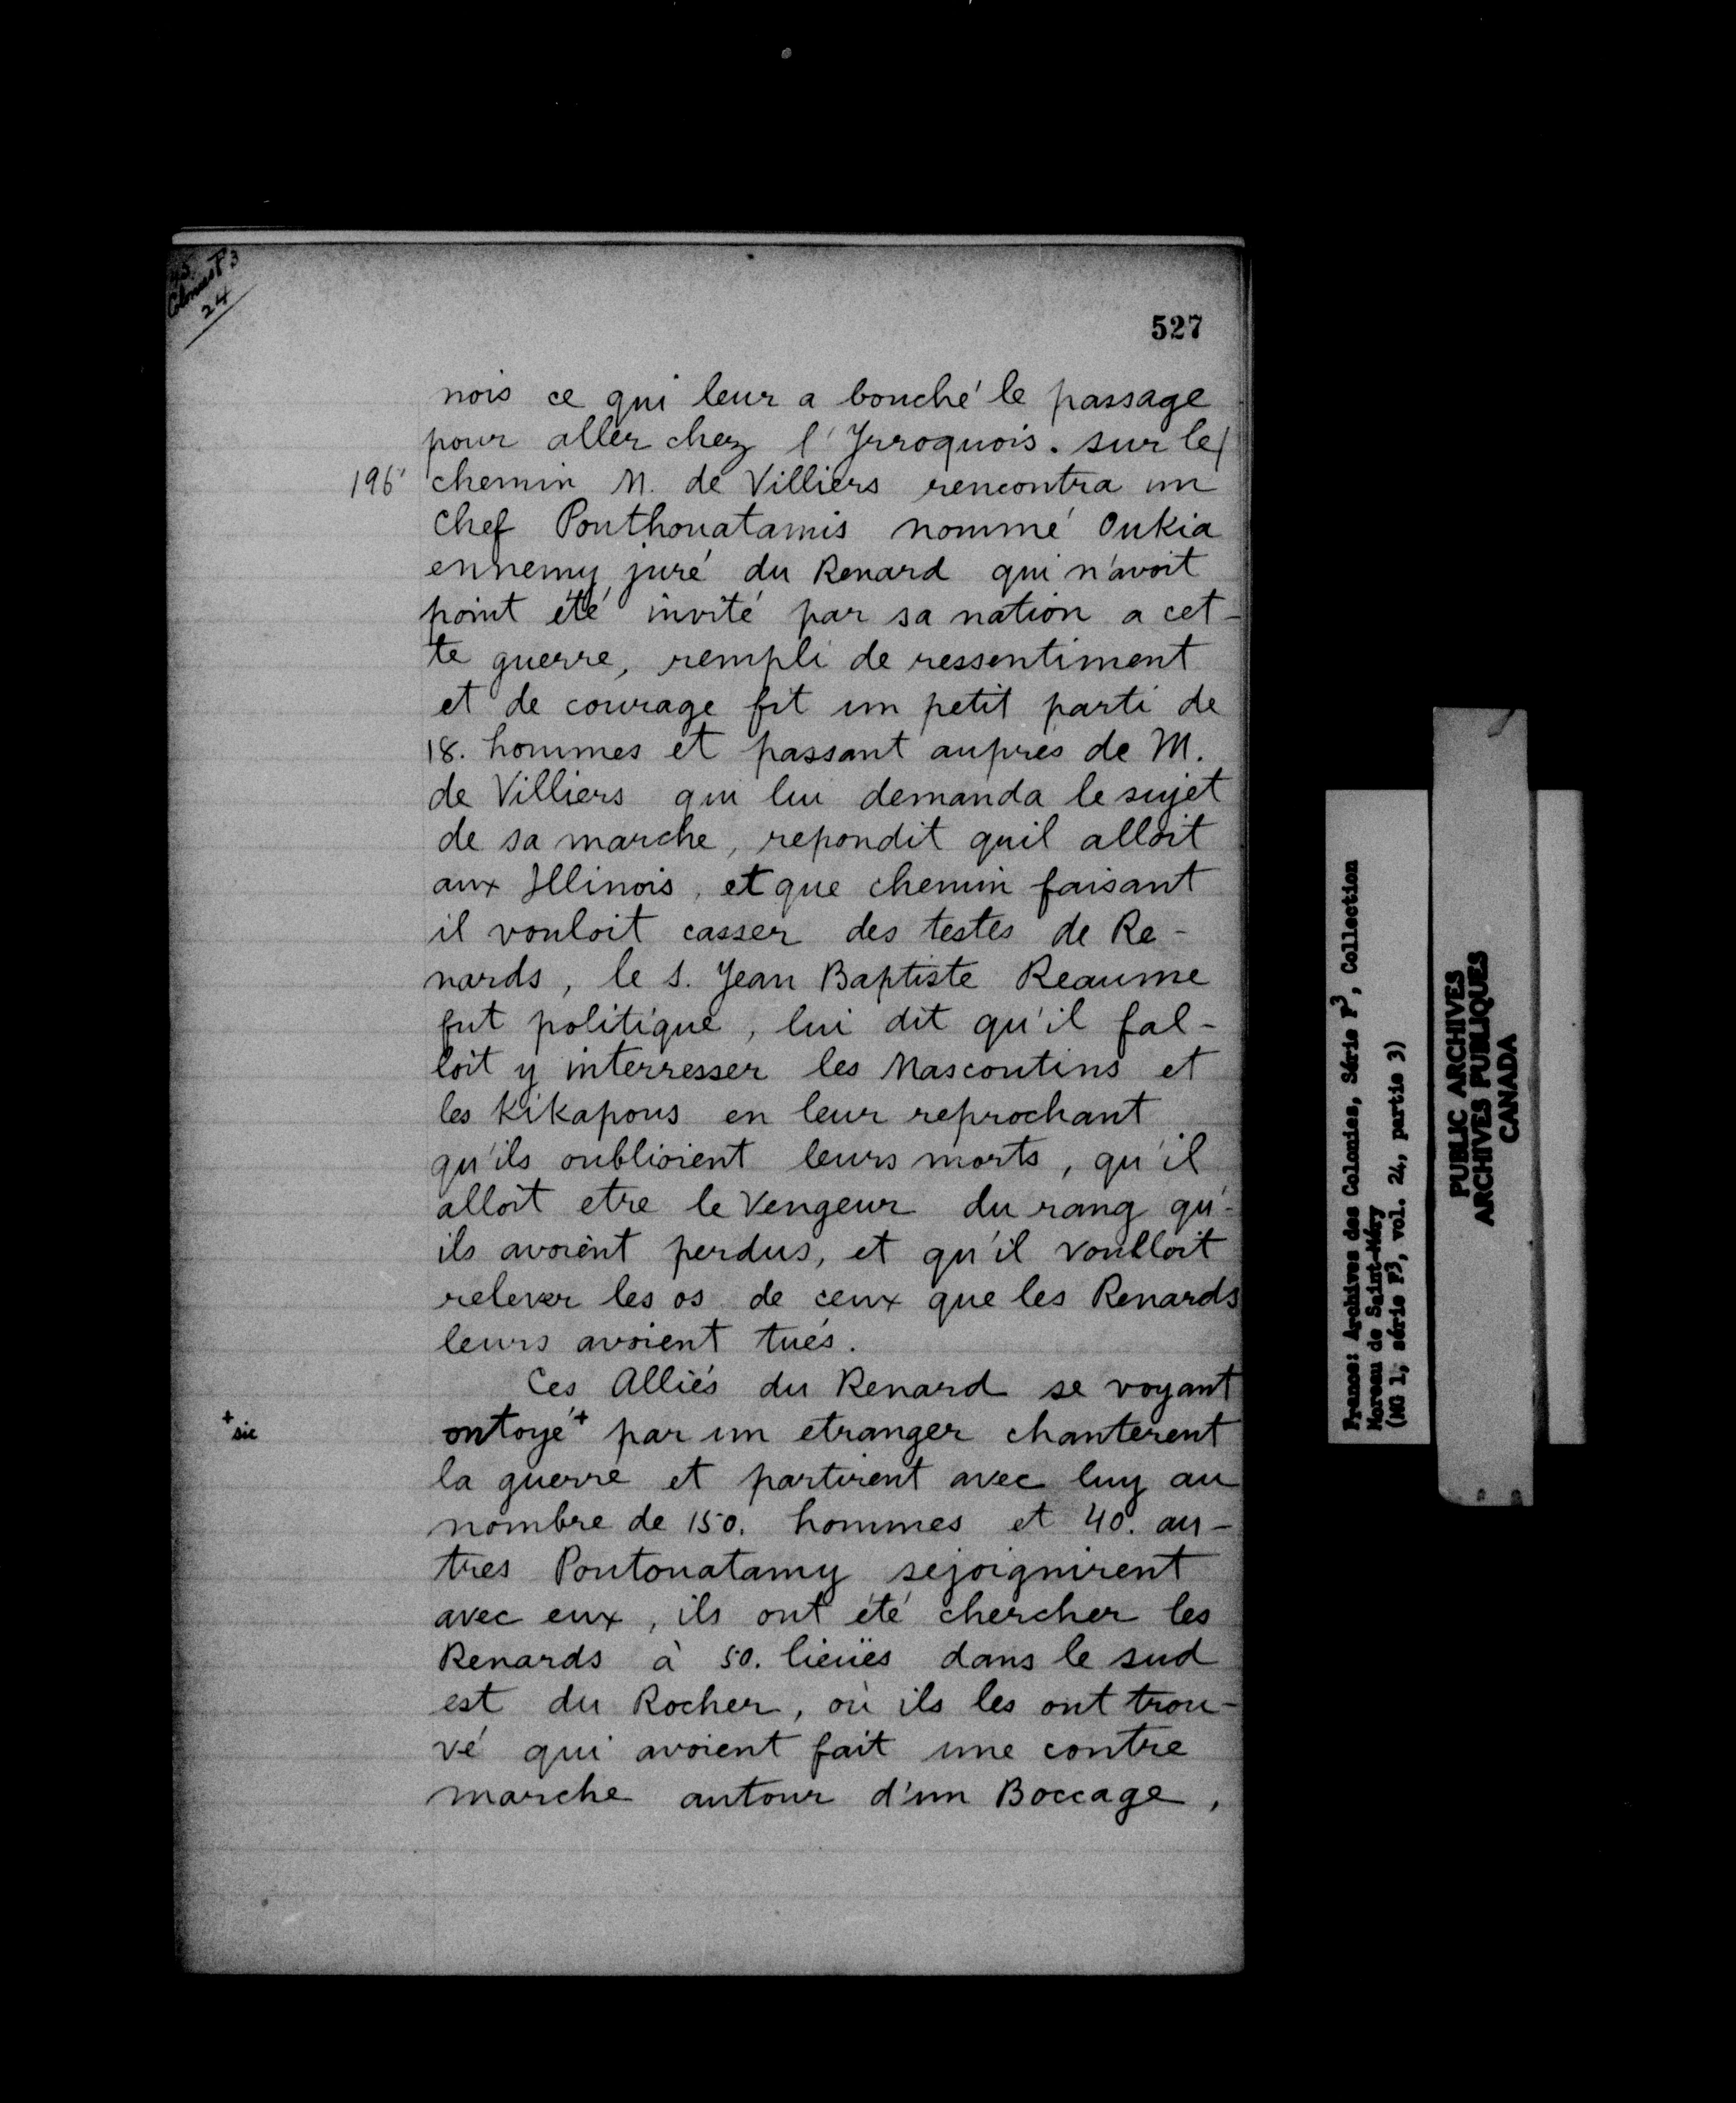 Colonies F3
24
527
nois ce qui leur a bouché le passage
pour aller chez l'Yrroquois. sur le/
196' chemin M. de Villiers rencontra un
chef Pouthouatamis nommé Oukia
ennemy juré du Renard qui n'avoit
point été invité par sa nation a cet-
te guerre, rempli de ressentiment
et de courage fit un petit parti de
18. hommes et passant auprès de M.
de Villiers qui lui demanda le sujet
de sa marche, repondit quil alloit
aux Illinois, et que chemin faisant
il vouloit casser des testes de Re-
nards, le s. Jean Baptiste Reaume
fut politique, lui dit qu'il fal-
loit y interresser les Mascoutins et
les Kikapous en leur reprochant
qu'ils oublioient leurs morts, qu'il
alloit etre le Vengeur du rang qu'-
ils avoient perdus, et qu'il voulloit
relever les os de ceux que les Renards
leurs avoient tués.
Ces Alliés du Renard se voyant
+ sic
ontoyé+ par un etranger chanterent
la guerre et partirent avec luy au
nombre de 150. hommes et 40. au-
tres Poutouatamy sejoignirent
avec eux, ils ont été chercher les
Renards à 50. lieües dans le sud
est du Rocher, où ils les ont trou-
vé qui avoient fait une contre
marche autour d'un Boccage,
France: Archives des Colonies, Série F3, Collection
Moreau de Saint-Méry
(MG 1, série F3, vol. 24, partie 3)
PUBLIC ARCHIVES
ARCHIVES PUBLIQUES
CANADA